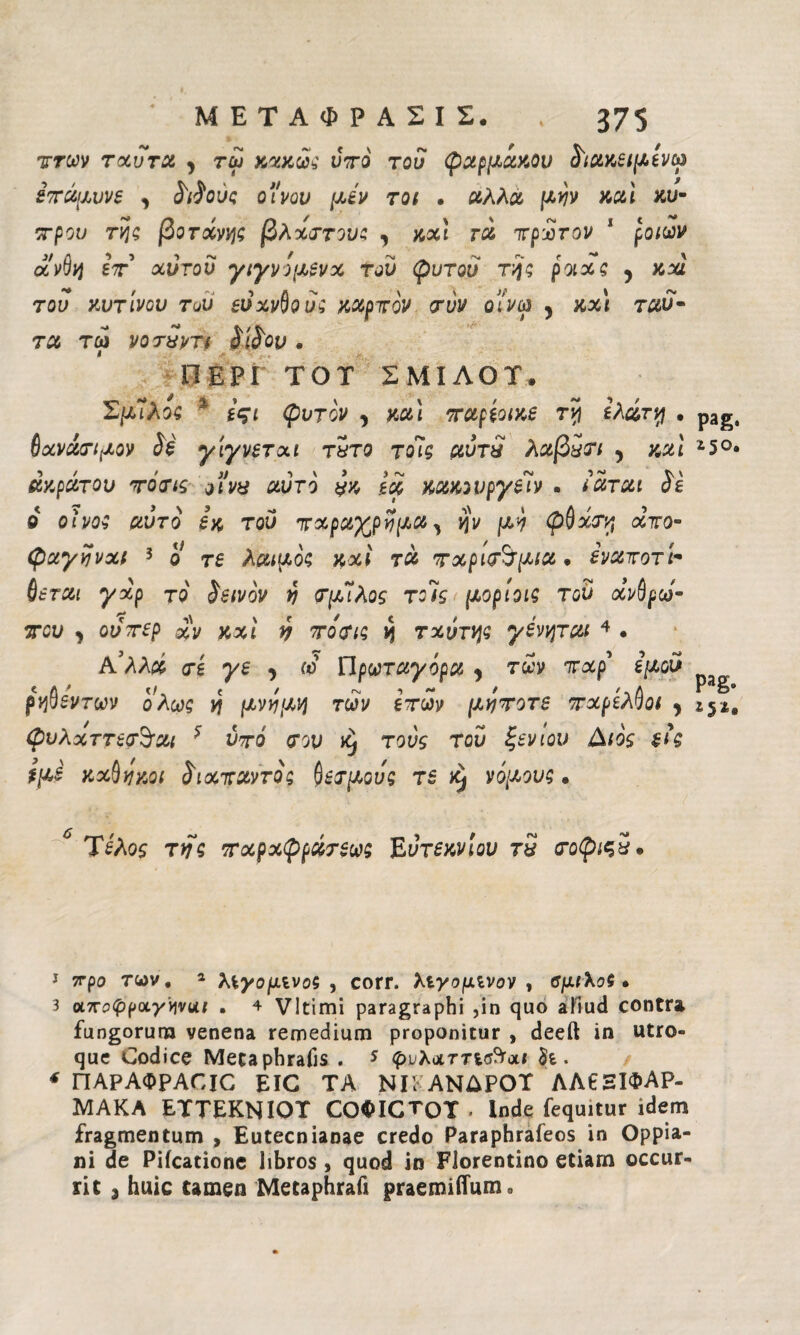 ΜΕΤΑΦΡΑΣΙΣ. 375
πτων ταῦτα , τῷ κακῶς ὑπὸ τοῦ φαρμάκου διακειμένῳ
ἐπάμυνε , διδοὺς οἴνου μέν τοι . ἀλλὰ μὴν καὶ κύ-
πρου τῆς βοτάνης βλάστους , καὶ τὰ πρῶτον ¹ ῥοιῶν
ἄνθη ἐπ' αὐτοῦ γιγνόμενα τοῦ φυτοῦ τῆς ῥοιᾶς , καὶ
τοῦ κυτίνου τοῦ εὐανθοῦς καρπὸν σὺν οἴνῳ , καὶ ταῦ-
τα τῷ νοσȣντι δίδου .
ΠΕΡΙ ΤΟΥ ΣΜΙΛΟΥ.
Σμῖλός ² ἐϛι φυτὸν , καὶ παρέοικε τῇ ἐλάτῃ . pag.
θανάσιμον δὲ γίγνεται τȣτο τοῖς αὐτȣ λαβȣσι , καὶ 250.
ἀκράτου πόσις οἴνȣ αὐτὸ ȣκ ἐᾷ κακουργεῖν . ἰᾶται δὲ
ὁ οἶνος αὐτὸ ἐκ τοῦ παραχρῆμα , ἢν μὴ φθάσῃ ἀπο-
φαγῆναι ³ ὅ τε λαιμὸς καὶ τὰ παρίσθμια . ἐναποτί-
θεται γὰρ τὸ δεινὸν ἡ σμῖλος τοῖς μορίοις τοῦ ἀνθρώ-
που , οὗπερ ἂν καὶ ἡ πόσις ἡ ταύτης γένηται ⁴ .
Ἀλλά σέ γε , ὦ Πρωταγόρα , τῶν παρ' ἐμοῦ pag.
ῥηθέντων ὅλως ἡ μνήμη τῶν ἐτῶν μήποτε παρέλθοι , 252.
φυλάττεσθαι ⁵ ὑπό σου ϗ τοὺς τοῦ ξενίου Διὸς εἰς
ἐμὲ καθήκοι διαπαντὸς θεσμούς τε ϗ νόμους .
⁶ Τέλος τῆς παραφράσεως Εὐτεκνίου τȣ σοφιϛȣ .
¹ προ των . ² λεγομενος , corr. λεγομενον , σμιλος .
³ αποφραγῆναι . ⁴ Vltimi paragraphi ,in quo aliud contra
fungorum venena remedium proponitur , deest in utro-
que Codice Metaphrasis . ⁵ φυλαττεσθαι δε .
⁶ ΠΑΡΑΦΡΑCΙC ΕΙC ΤΑ ΝΙΚΑΝΔΡΟΥ ΑΛЄΞΙΦΑΡ-
ΜΑΚΑ ΕΥΤΕΚΝΙΟΥ CΟΦΙCΤΟΥ . Inde sequitur idem
fragmentum , Eutecnianae credo Paraphraseos in Oppia-
ni de Piscatione libros , quod in Florentino etiam occur-
rit , huic tamen Metaphrasi praemissum .